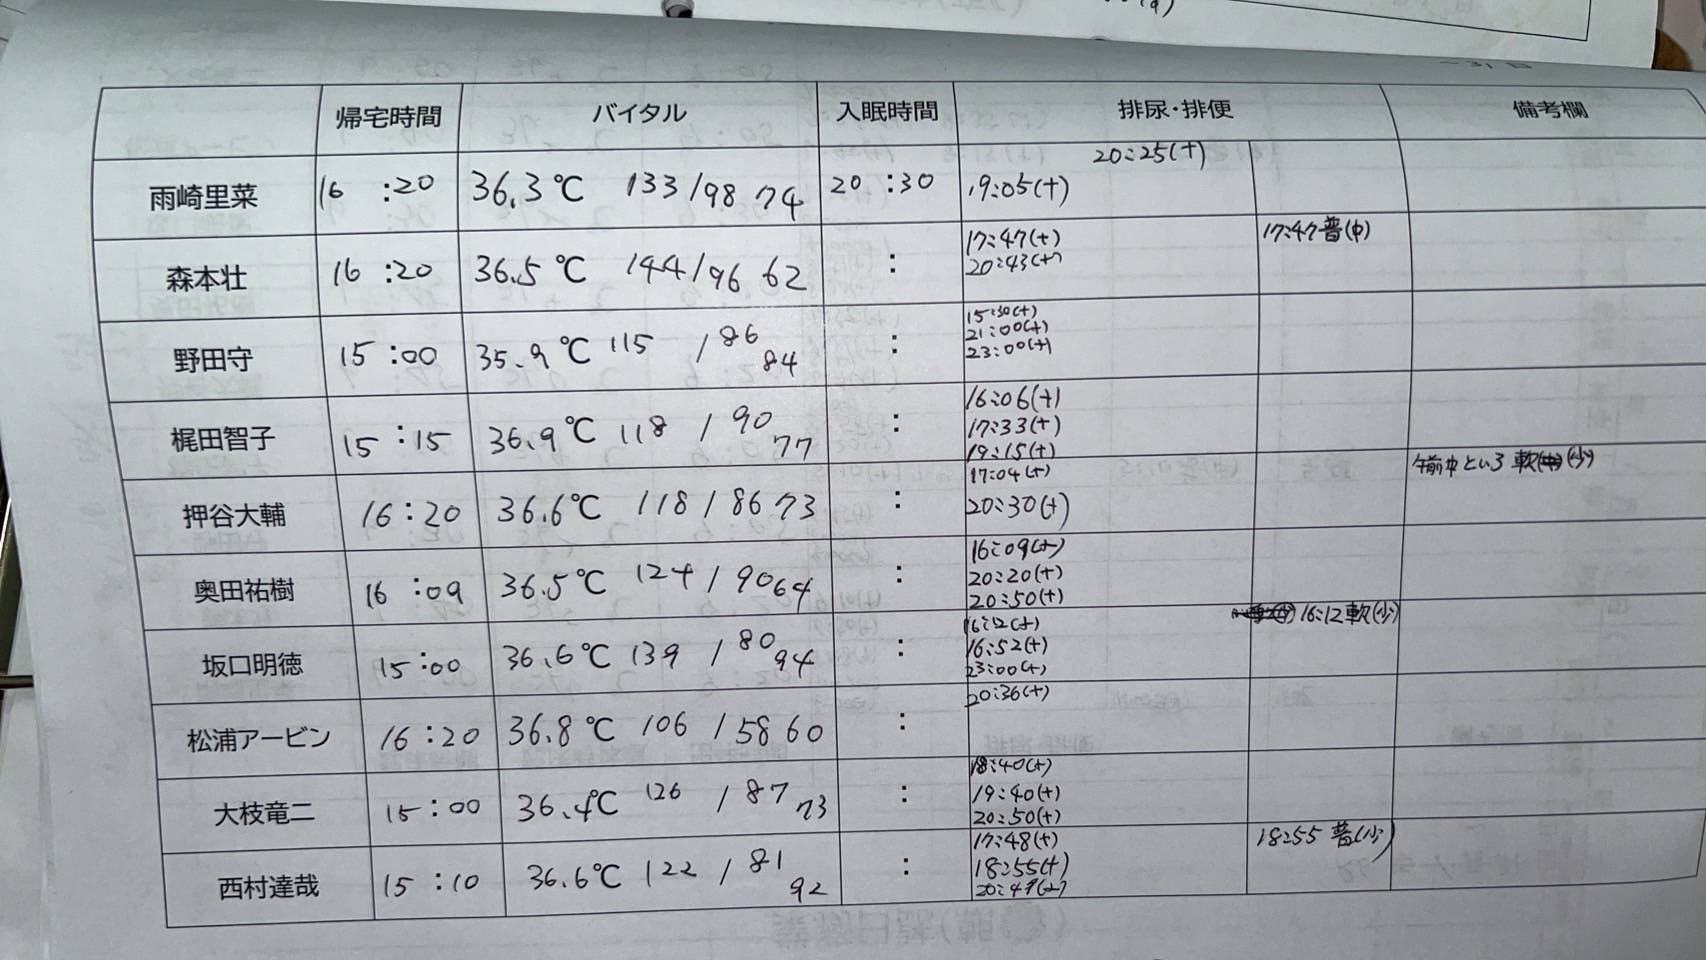 帰宅時間 バイタル 入眠時間 排尿・排便 備考欄
20:25(+)
雨崎里菜 16:20 36.3℃ 133/98 74 20:30 19:05(+)
17:47(+) 17:47普(中)
森本壮 16:20 36.5℃ 144/96 62 : 20:43(+)
15:30(+)
21:00(+)
野田守 15:00 35.9℃ 115/86 84 : 23:00(+)
16:06(+)
17:33(+)
梶田智子 15:15 36.9℃ 118/90 77 : 19:15(+)
17:04(+) 午前中という 軟(少)
押谷大輔 16:20 36.6℃ 118/86 73 : 20:30(+)
16:09(+)
20:20(+)
奥田祐樹 16:09 36.5℃ 124/90 64 : 20:50(+)
16:12(+) 16:12軟(少)
16:52(+)
坂口明徳 15:00 36.6℃ 139/80 94 : 23:00(+)
20:36(+)
松浦アービン 16:20 36.8℃ 106/58 60 :
18:40(+)
19:40(+)
大枝竜二 15:00 36.4℃ 126/87 73 : 20:50(+)
17:48(+) 18:55 普(少)
18:55(+)
西村達哉 15:10 36.6℃ 122/81 92 :